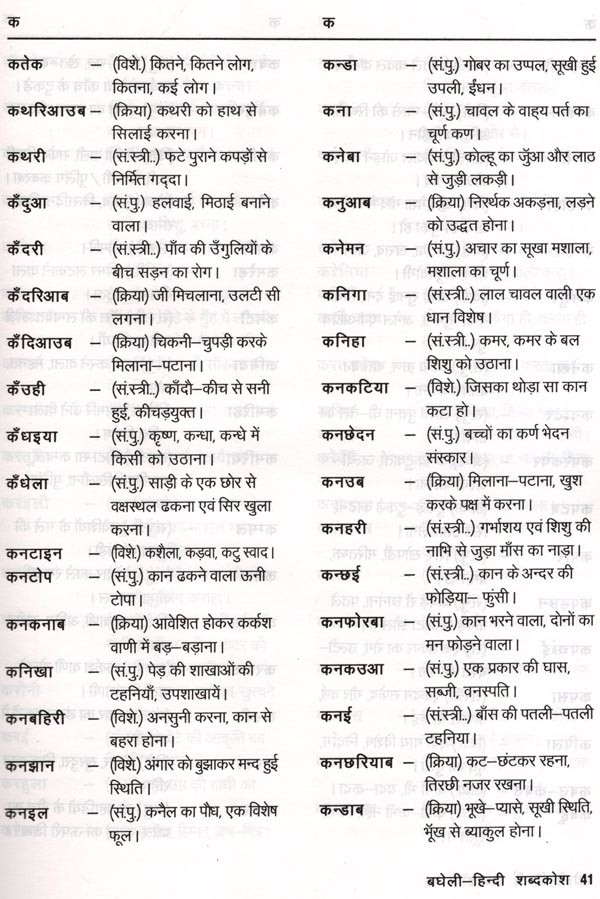 क
क
कतेक – (विशे.) कितने, कितने लोग,
कितना, कई लोग।
कथरिआउब – (क्रिया) कथरी को हाथ से
सिलाई करना।
कथरी – (सं.स्त्री..) फटे पुराने कपड़ों से
निर्मित गद्दा।
कँदुआ – (सं.पु.) हलवाई, मिठाई बनाने
वाला।
कँदरी – (सं.स्त्री.) पाँव की उँगुलियों के
बीच सड़न का रोग।
कँदरिआब – (क्रिया) जी मिचलाना, उलटी सी
लगना।
कँदिआउब – (क्रिया) चिकनी–चुपड़ी करके
मिलाना–पटाना।
कँउही – (सं.स्त्री..) काँदौ–कीच से सनी
हुई, कीचड़युक्त।
कँधइया – (सं.पु.) कृष्ण, कन्धा, कन्धे में
किसी को उठाना।
कँधेला – (सं.पु.) साड़ी के एक छोर से
वक्षस्थल ढकना एवं सिर खुला
करना।
कनटाइन – (विशे.) कशैला, कड़वा, कटु स्वाद।
कनटोप – (सं.पु.) कान ढकने वाला ऊनी
टोपा।
कनकनाब – (क्रिया) आवेशित होकर कर्कश
वाणी में बड़–बड़ाना।
कनिखा – (सं.पु.) पेड़ की शाखाओं की
टहनियाँ, उपशाखायें।
कनबहिरी – (विशे.) अनसुनी करना, कान से
बहरा होना।
कनझान – (विशे.) अंगार को बुझाकर मन्द हुई
स्थिति।
कनइल – (सं.पु.) कनैल का पौध, एक विशेष
फूल।
कन्डा – (सं.पु.) गोबर का उप्पल, सूखी हुई
उपली, ईंधन।
कना – (सं.पु.) चावल के वाहय पर्त का
चूर्ण कण।
कनेबा – (सं.पु.) कोल्हू का जुँआ और लाठ
से जुड़ी लकड़ी।
कनुआब – (क्रिया) निरर्थक अकड़ना, लड़ने
को उद्धत होना।
कनेमन – (सं.पु.) अचार का सूखा मशाला,
मशाला का चूर्ण।
कनिगा – (सं.स्त्री..) लाल चावल वाली एक
धान विशेष।
कनिहा – (सं.स्त्री.) कमर, कमर के बल
शिशु को उठाना।
कनकटिया – (विशे.) जिसका थोड़ा सा कान
कटा हो।
कनछेदन – (सं.पु.) बच्चों का कर्ण भेदन
संस्कार।
कनउब – (क्रिया) मिलाना–पटाना, खुश
करके पक्ष में करना।
कनहरी – (सं.स्त्री..) गर्भाशय एवं शिशु की
नाभि से जुड़ा माँस का नाड़ा।
कन्छई – (सं.स्त्री..) कान के अन्दर की
फोड़िया– फुंसी।
कनफोरबा – (सं.पु.) कान भरने वाला, दोनों का
मन फोड़ने वाला।
कनकउआ – (सं.पु.) एक प्रकार की घास,
सब्जी, वनस्पति।
कनई – (सं.स्त्री..) बाँस की पतली–पतली
टहनिया।
कनछरियाब – (क्रिया) कट–छंटकर रहना,
तिरछी नजर रखना।
कन्डाब – (क्रिया) भूखे–प्यासे, सूखी स्थिति,
भूँख से ब्याकुल होना।
बघेली–हिन्दी शब्दकोश 41